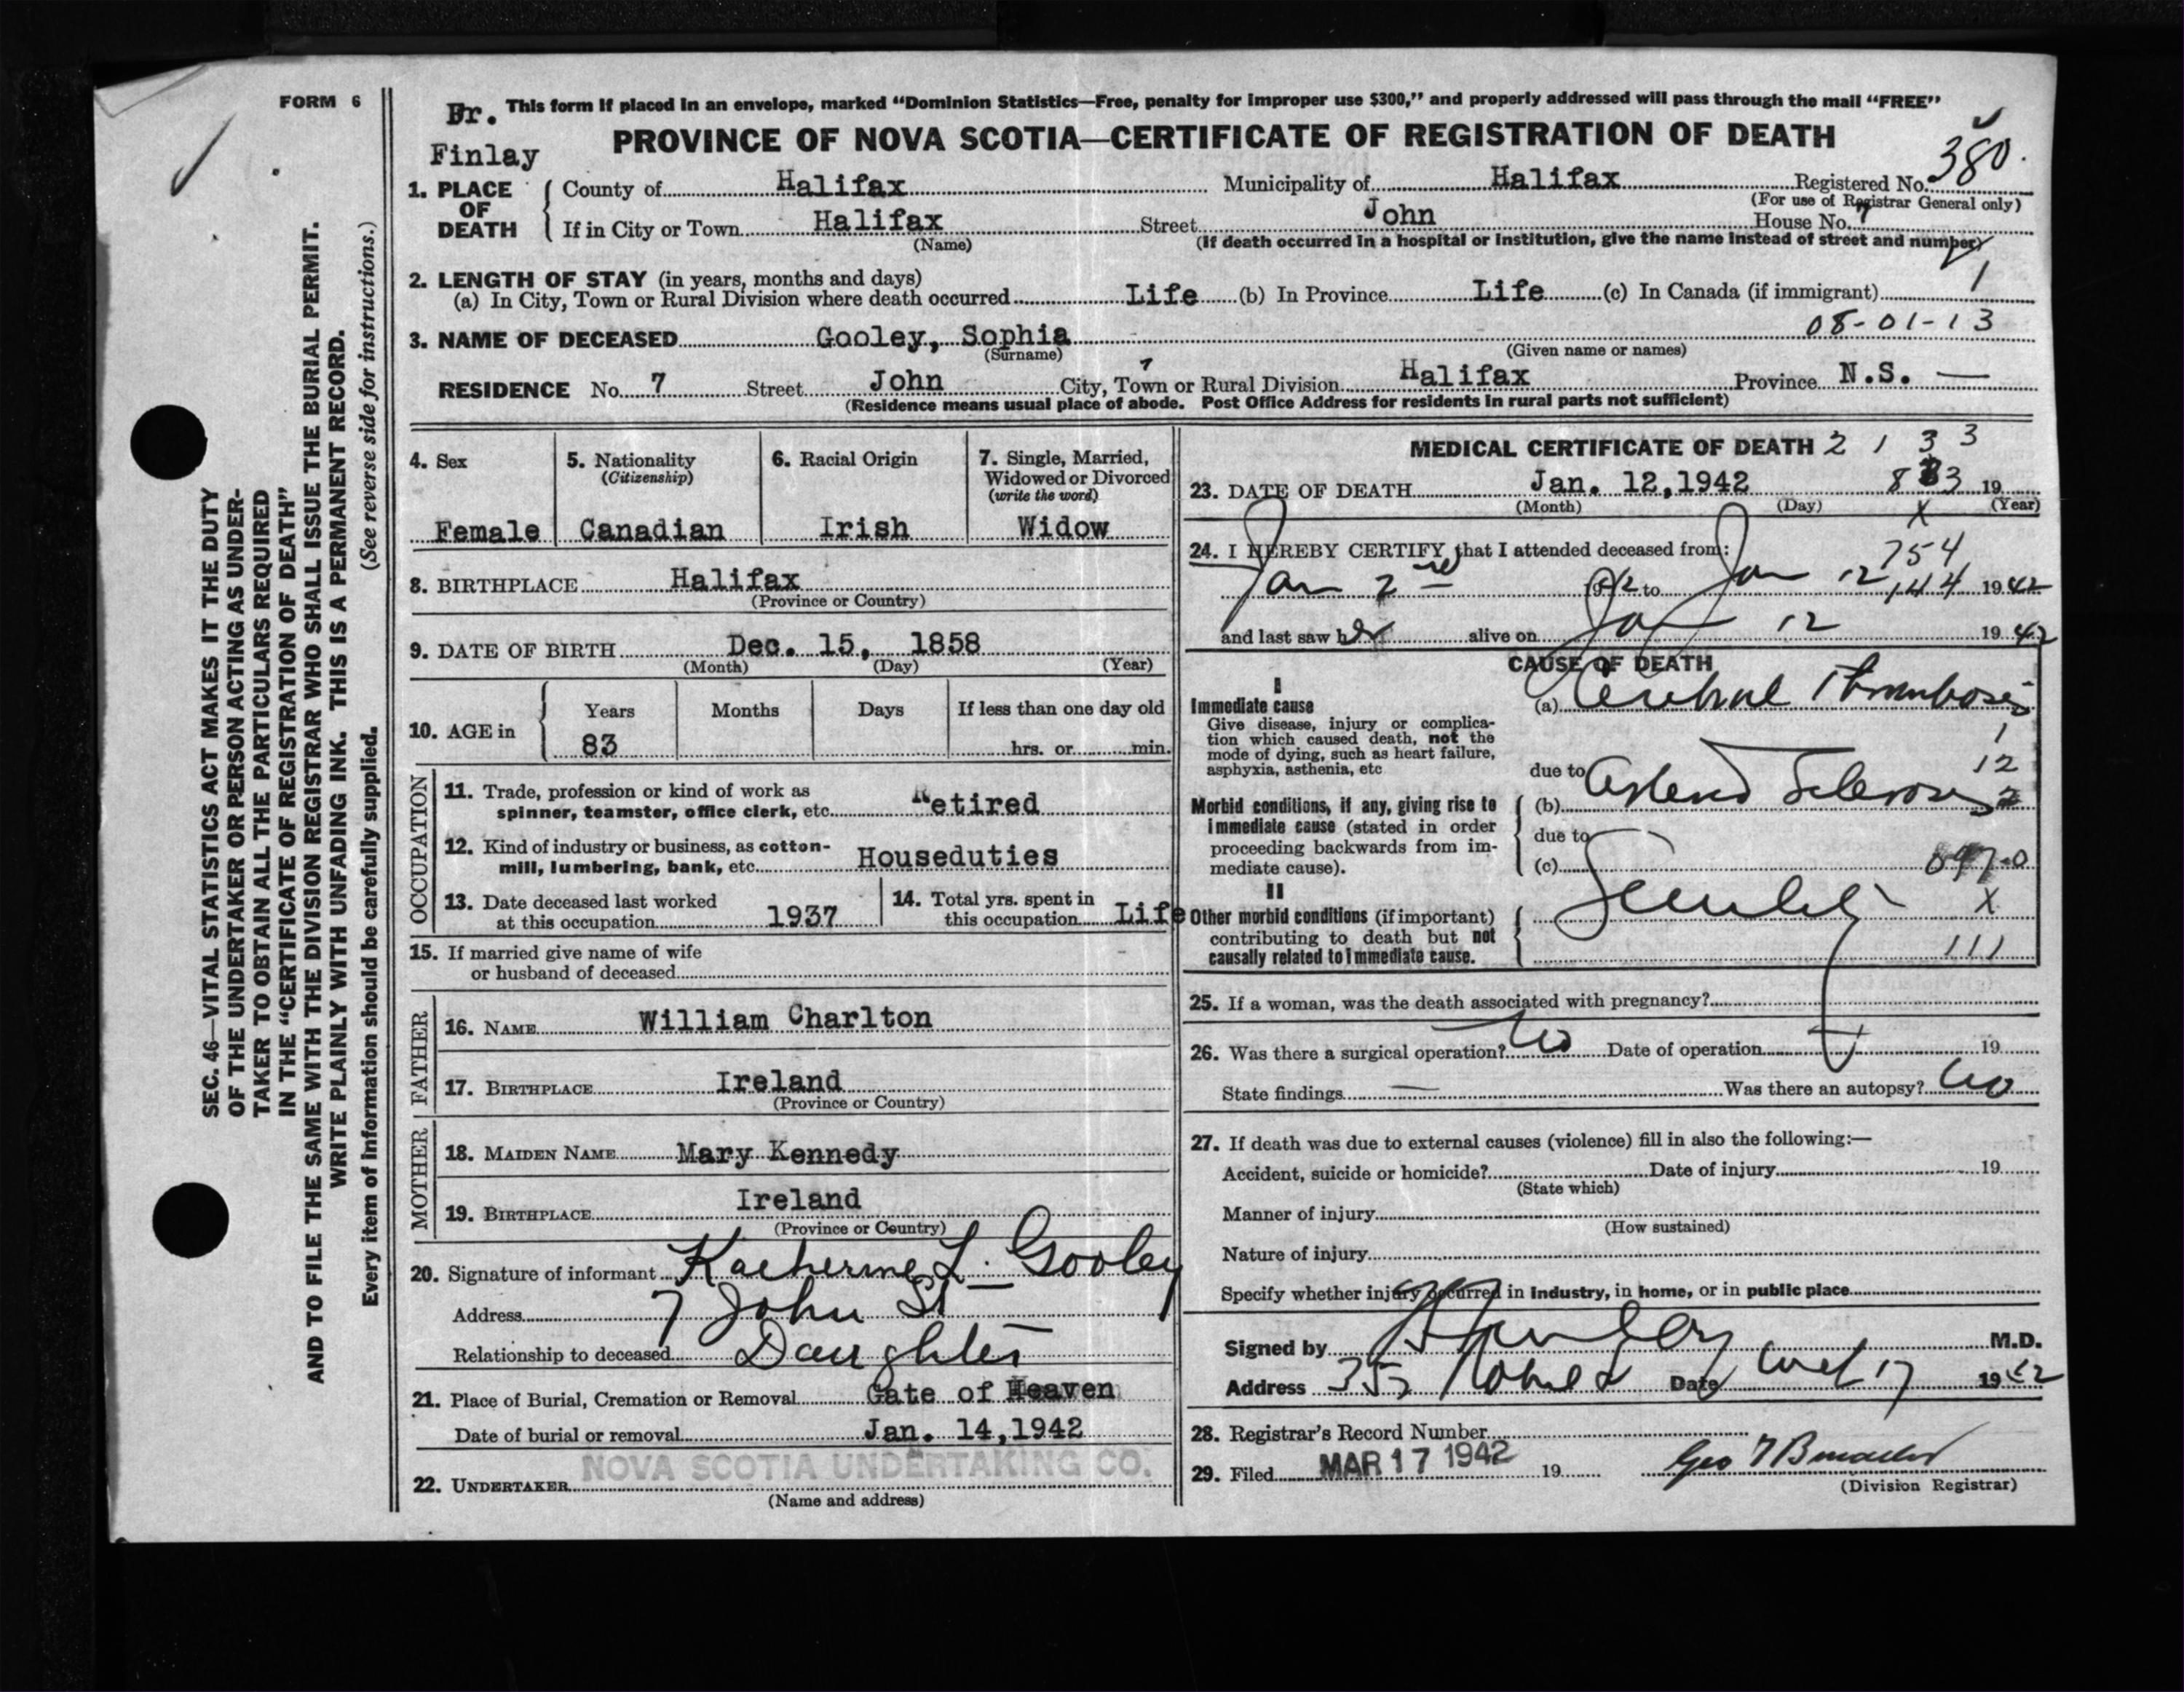 FORM 6
SEC. 46—VITAL STATISTICS ACT MAKES IT THE DUTY
OF THE UNDERTAKER OR PERSON ACTING AS UNDER-
TAKER TO OBTAIN ALL THE PARTICULARS REQUIRED
IN THE "CERTIFICATE OF REGISTRATION OF DEATH"
AND TO FILE THE SAME WITH THE DIVISION REGISTRAR WHO SHALL ISSUE THE BURIAL PERMIT.
WRITE PLAINLY WITH UNFADING INK. THIS IS A PERMANENT RECORD.
Every item of information should be carefully supplied. (See reverse side for instructions.)
Fr. This form if placed in an envelope, marked "Dominion Statistics—Free, penalty for improper use $300," and properly addressed will pass through the mail "FREE"
Finlay
PROVINCE OF NOVA SCOTIA—CERTIFICATE OF REGISTRATION OF DEATH
380.
1. PLACE OF DEATH
County of Halifax Municipality of Halifax Registered No.
(For use of Registrar General only)
If in City or Town Halifax Street John House No. 7
(Name) (If death occurred in a hospital or institution, give the name instead of street and number)
2. LENGTH OF STAY (in years, months and days)
(a) In City, Town or Rural Division where death occurred Life (b) In Province Life (c) In Canada (if immigrant) 1
08-01-13
3. NAME OF DECEASED Gooley, Sophia
(Surname) (Given name or names)
RESIDENCE No. 7 Street John City, Town or Rural Division Halifax Province N.S. —
(Residence means usual place of abode. Post Office Address for residents in rural parts not sufficient)
4. Sex
Female
5. Nationality
(Citizenship)
Canadian
6. Racial Origin
Irish
7. Single, Married,
Widowed or Divorced
(write the word)
Widow
8. BIRTHPLACE Halifax
(Province or Country)
9. DATE OF BIRTH Dec. 15, 1858
(Month) (Day) (Year)
10. AGE in
Years Months Days If less than one day old
83 hrs. or min.
OCCUPATION
11. Trade, profession or kind of work as
spinner, teamster, office clerk, etc. Retired
12. Kind of industry or business, as cotton-
mill, lumbering, bank, etc. Houseduties
13. Date deceased last worked
at this occupation 1937
14. Total yrs. spent in
this occupation Life
15. If married give name of wife
or husband of deceased
FATHER
16. NAME William Charlton
17. BIRTHPLACE Ireland
(Province or Country)
MOTHER
18. MAIDEN NAME Mary Kennedy
19. BIRTHPLACE Ireland
(Province or Country)
20. Signature of informant Katherine L. Gooley
Address 7 John St
Relationship to deceased Daughter
21. Place of Burial, Cremation or Removal Gate of Heaven
Date of burial or removal Jan. 14, 1942
22. UNDERTAKER NOVA SCOTIA UNDERTAKING CO.
(Name and address)
MEDICAL CERTIFICATE OF DEATH 2 1 3 3
23. DATE OF DEATH Jan. 12, 1942 19
(Month) (Day) (Year)
X
24. I HEREBY CERTIFY that I attended deceased from:
754
Jan 2nd 1942 to Jan 12 144 1942
and last saw her alive on Jan 12 1942
CAUSE OF DEATH
I
Immediate cause
Give disease, injury or complica-
tion which caused death, not the
mode of dying, such as heart failure,
asphyxia, asthenia, etc
(a) Cerebral Thrombosis
1
12
due to
Morbid conditions, if any, giving rise to
immediate cause (stated in order
proceeding backwards from im-
mediate cause).
(b) Arterio Sclerosis
due to
(c)
II
Other morbid conditions (if important)
contributing to death but not
causally related to immediate cause.
Senility
X
111
25. If a woman, was the death associated with pregnancy?
26. Was there a surgical operation? No Date of operation 19
State findings — Was there an autopsy? No
27. If death was due to external causes (violence) fill in also the following:—
Accident, suicide or homicide? Date of injury 19
(State which)
Manner of injury
(How sustained)
Nature of injury
Specify whether injury occurred in industry, in home, or in public place
Signed by M.D.
Address Date 17 1942
28. Registrar's Record Number
29. Filed MAR 17 1942 19
(Division Registrar)